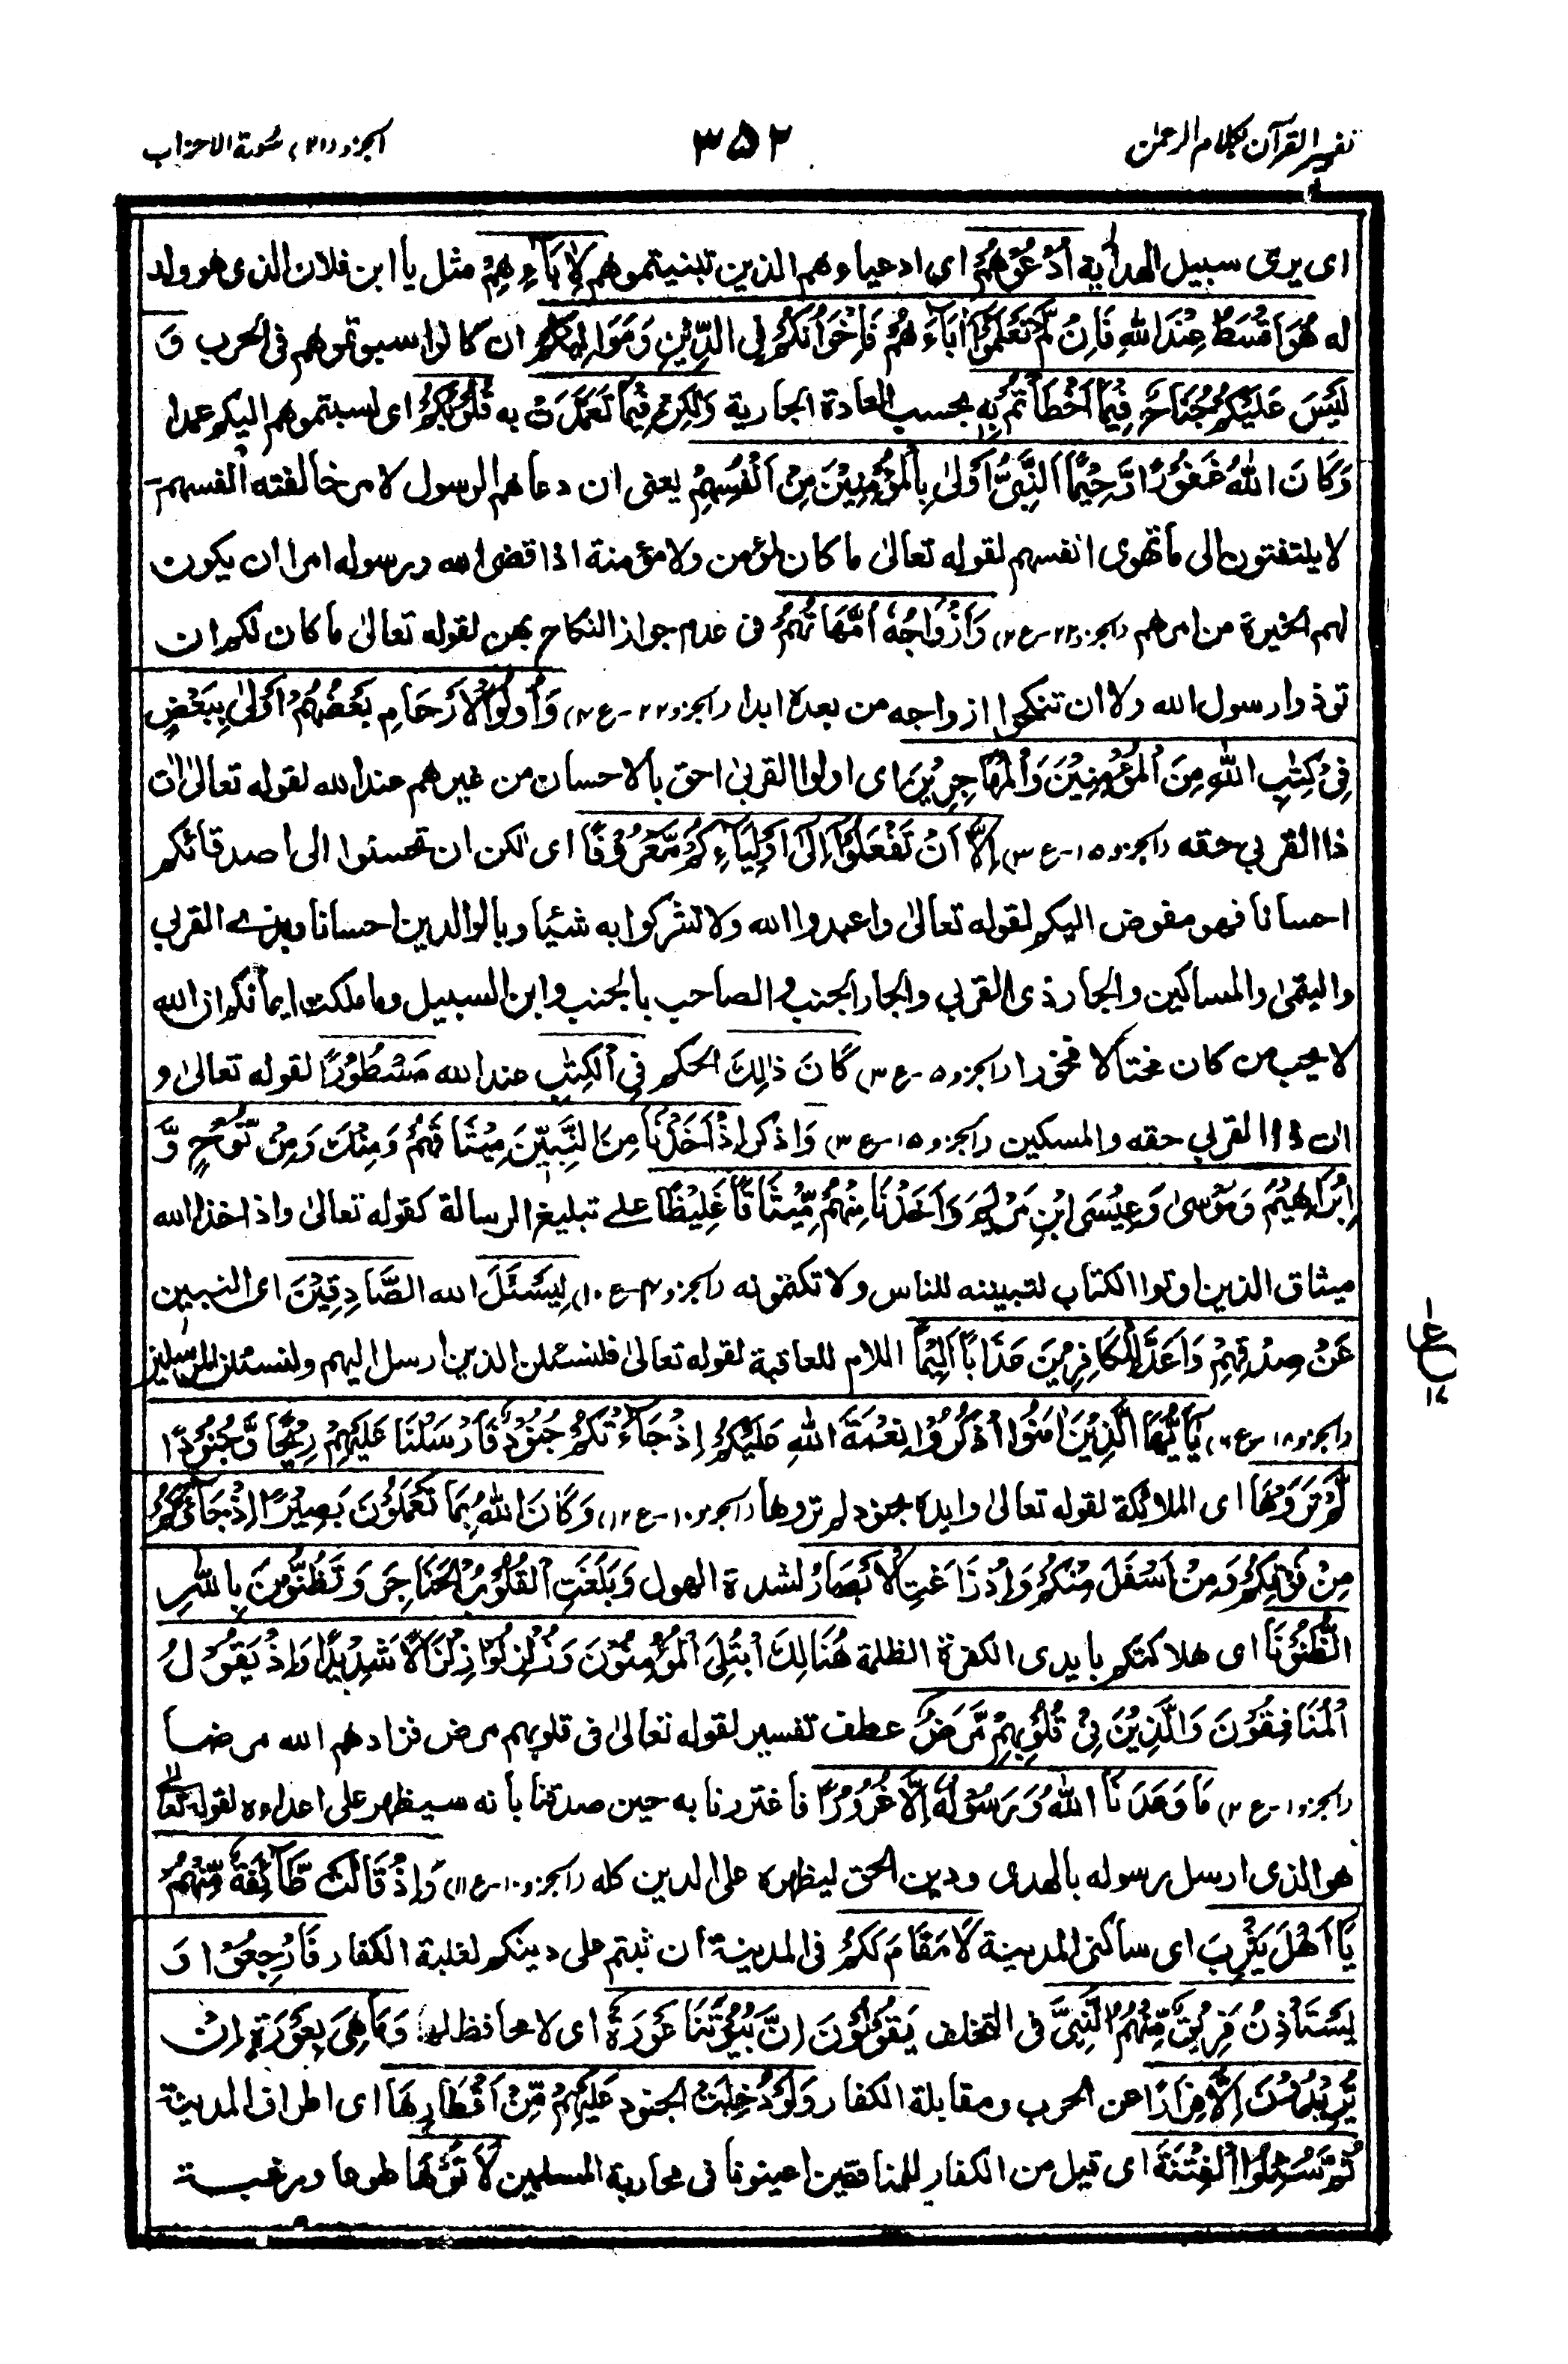 تفسير القرآن بكلام الرحمن ٣٥٢ الجزو (٢١) سورة الاحزاب
اى يرى سبيل الهداية اُدْعُوْهُمْ اى ادعياءهم الذين تبنيتموهم لِاٰبَآءِهِمْ مثل يا ابن فلان الذى هو ولد
له هُوَ اَقْسَطُ عِنْدَ اللهِ فَاِنْ لَّمْ تَعْلَمُوْۤا اٰبَآءَهُمْ فَاِخْوَانُكُمْ فِى الدِّيْنِ وَمَوَالِيْكُمْ ان كانوا سبوتموهم فى الحرب وَ
لَيْسَ عَلَيْكُمْ جُنَاحٌ فِيْمَاۤ اَخْطَأْتُمْ بِهٖ بحسب العادة الجارية وَلٰكِنْ فِيْمَا تَعَمَّدَتْ به قُلُوْبُكُمْ اى نسبتموهم اليكم عمدا
وَكَانَ اللهُ غَفُوْرًا رَّحِيْمًا اَلنَّبِىُّ اَوْلٰى بِالْمُؤْمِنِيْنَ مِنْ اَنْفُسِهِمْ يعنى ان دعاهم الرسول لامر خالفته انفسهم
لا يلتفتون الى ما تهوى انفسهم لقوله تعالىٰ ما كان لمؤمن ولا مؤمنة اذا قضى الله ورسوله امرا ان يكون
لهم الخيرة من امرهم (الجزو ٢٢-ع ٢) وَاَزْوَاجُهٗۤ اُمَّهَاتُهُمْ فى عدم جواز النكاح بهن لقوله تعالىٰ ما كان لكم ان
توذوا رسول الله ولا ان تنكحوا ازواجه من بعده ابدا (الجزو ٢٢-ع ٤) وَاُولُوا الْاَرْحَامِ بَعْضُهُمْ اَوْلٰى بِبَعْضٍ
فِىْ كِتٰبِ اللهِ مِنَ الْمُؤْمِنِيْنَ وَالْمُهَاجِرِيْنَ اى اولوا القربىٰ احق بالاحسان من غيرهم عند الله لقوله تعالىٰ اٰت
ذا القربى حقه (الجزو ١٥-ع ٣) اِلَّاۤ اَنْ تَفْعَلُوْۤا اِلٰۤى اَوْلِيَآءِكُمْ مَّعْرُوْفًا اى لكن ان تحسنوا الى اصدقائكم
احسانا فهو مفوض اليكم لقوله تعالىٰ واعبدوا الله ولا تشركوا به شيئا وبالوالدين احسانا وبذى القربى
واليتمىٰ والمساكين والجار ذى القربى والجار الجنب والصاحب بالجنب وابن السبيل وما ملكت ايمانكم ان الله
لا يحب من كان مختالا فخورا (الجزو ٥-ع ٣) كَانَ ذٰلِكَ الحكم فِى الْكِتٰبِ عند الله مَسْطُوْرًا لقوله تعالىٰ و
اٰت ذا القربى حقه والمسكين (الجزو ١٥-ع ٣) وَ اذكر اِذْ اَخَذْنَا مِنَ النَّبِيّٖنَ مِيْثَاقَهُمْ وَمِنْكَ وَمِنْ نُّوْحٍ وَّ
اِبْرَاهِيْمَ وَمُوْسٰى وَعِيْسَى ابْنِ مَرْيَمَ وَاَخَذْنَا مِنْهُمْ مِّيْثَاقًا غَلِيْظًا على تبليغ الرسالة كقوله تعالىٰ واذ اخذ الله
ميثاق الذين اوتوا الكتاب لتبيننه للناس ولا تكتمونه (الجزو ٤-ع ١٠) لِيَسْئَلَ الله الصَّادِقِيْنَ اى النبيين
عَنْ صِدْقِهِمْ وَاَعَدَّ لِلْكَافِرِيْنَ عَذَابًا اَلِيْمًا اللام للعاقبة لقوله تعالىٰ فلنسئلن الذين ارسل اليهم ولنسئلن المرسلين
يٰۤاَيُّهَا الَّذِيْنَ اٰمَنُوا اذْكُرُوْا نِعْمَةَ اللهِ عَلَيْكُمْ اِذْ جَآءَتْكُمْ جُنُوْدٌ فَاَرْسَلْنَا عَلَيْهِمْ رِيْحًا وَّجُنُوْدًا
لَّمْ تَرَوْهَا اى الملائكة لقوله تعالىٰ وايده بجنود لم تروها (الجزو ١٠-ع ١٢) وَكَانَ اللهُ بِمَا تَعْمَلُوْنَ بَصِيْرًا اِذْ جَآءُوْكُمْ
مِنْ فَوْقِكُمْ وَمِنْ اَسْفَلَ مِنْكُمْ وَاِذْ زَاغَتِ الْاَبْصَارُ لشدة الهول وَبَلَغَتِ الْقُلُوْبُ الْحَنَاجِرَ وَتَظُنُّوْنَ بِاللهِ
الظُّنُوْنَا اى هلاكتكم بايدى الكفرة الظلمة هُنَالِكَ ابْتُلِىَ الْمُؤْمِنُوْنَ وَزُلْزِلُوْا زِلْزَالًا شَدِيْدًا وَاِذْ يَقُوْلُ
الْمُنَافِقُوْنَ وَالَّذِيْنَ فِىْ قُلُوْبِهِمْ مَّرَضٌ عطف تفسير لقوله تعالىٰ فى قلوبهم مرض فزادهم الله مرضا
(الجزو ١-ع ٢) مَا وَعَدَنَا اللهُ وَرَسُوْلُهٗۤ اِلَّا غُرُوْرًا فاغتررنا به حين صدقنا بانه سيظهر على اعداءه لقوله تعالىٰ
هو الذى ارسل رسوله بالهدى ودين الحق ليظهره على الدين كله (الجزو ١٠-ع ١١) وَاِذْ قَالَتْ طَّآئِفَةٌ مِّنْهُمْ
يَاۤ اَهْلَ يَثْرِبَ اى ساكنى المدينة لَا مَقَامَ لَكُمْ فى المدينة ان ثبتم على دينكم لغلبة الكفار فَارْجِعُوْا وَ
يَسْتَأْذِنُ فَرِيْقٌ مِّنْهُمُ النَّبِىَّ فى التخلف يَقُوْلُوْنَ اِنَّ بُيُوْتَنَا عَوْرَةٌ اى لا محافظ لها وَمَا هِىَ بِعَوْرَةٍ اِنْ
يُّرِيْدُوْنَ اِلَّا فِرَارًا عن الحرب ومقابلة الكفار وَلَوْ دُخِلَتْ الجنود عَلَيْهِمْ مِّنْ اَقْطَارِهَا اى اطراف المدينة
ثُمَّ سُئِلُوا الْفِتْنَةَ اى قيل من الكفار للمنافقين اعينونا فى محاربة المسلمين لَاٰتَوْهَا طوعا ورغبة